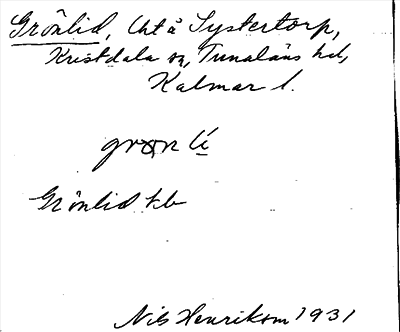 Grönlid, Urt å Systertorp,
Kristdala sn, Tunaläns hd,
Kalmar l.
grøn lí
Grönlid kb
Nils Henrikson 1931